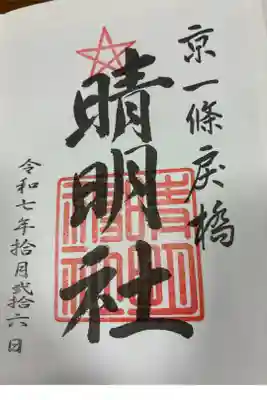 京一條戻橋
晴明社
令和七年拾月弐拾六日